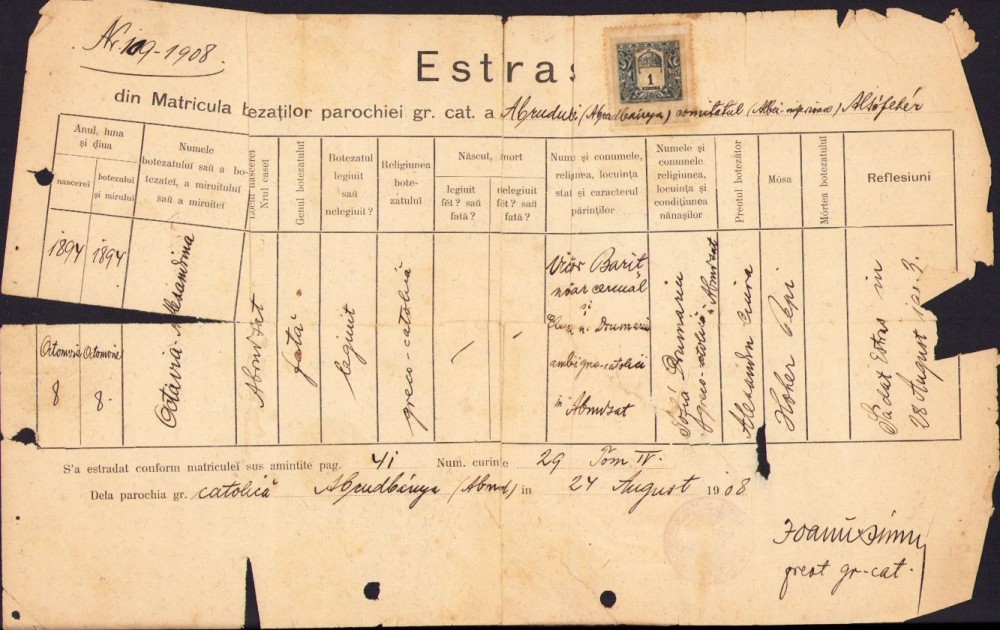 Nr. 109-1908.
Estras
1
din Matricula botezaților parochiei gr. cat. a Abrudului (Abrudbánya) comitatul Alsófehér
Anul, luna și ḑina
nascerei
botezului și mirului
Numele botezatului saŭ a botezatei, a miruitului saŭ a miruitei
Locul nascerei
Nrul casei
Genul botezatului
Botezatul legiuit saŭ nelegiuit?
Religiunea botezatului
Născut, mort
legiuit fět? saŭ fată?
nelegiuit fět? saŭ fată?
Num și conumele, religiunea, locuința stat și caracterul părinților
Numele și conumele religiunea, locuința și condițiunea nănașilor
Preotul botezător
Mósa
Mórtea botezatului
Reflesiuni
1894
1894
Octomvrie
Octomvrie
8
8.
Octavia-Alesandrina
Abrudsat
fată
legiuit
greco-catolică
Barit
și
ambi greco-catolici
în Abrudsat
greco-catolică
Abrudsat
Alesandru Ciura
Hoher Pepi
S'a dat Estras in
28 August
S'a estradat conform matriculei sus amintite pag. 41 Num. curinte 29 Tom IV.
Dela parochia gr. catolică Abrudbánya (Abrud) in 24 August 1908.
preot gr-cat.